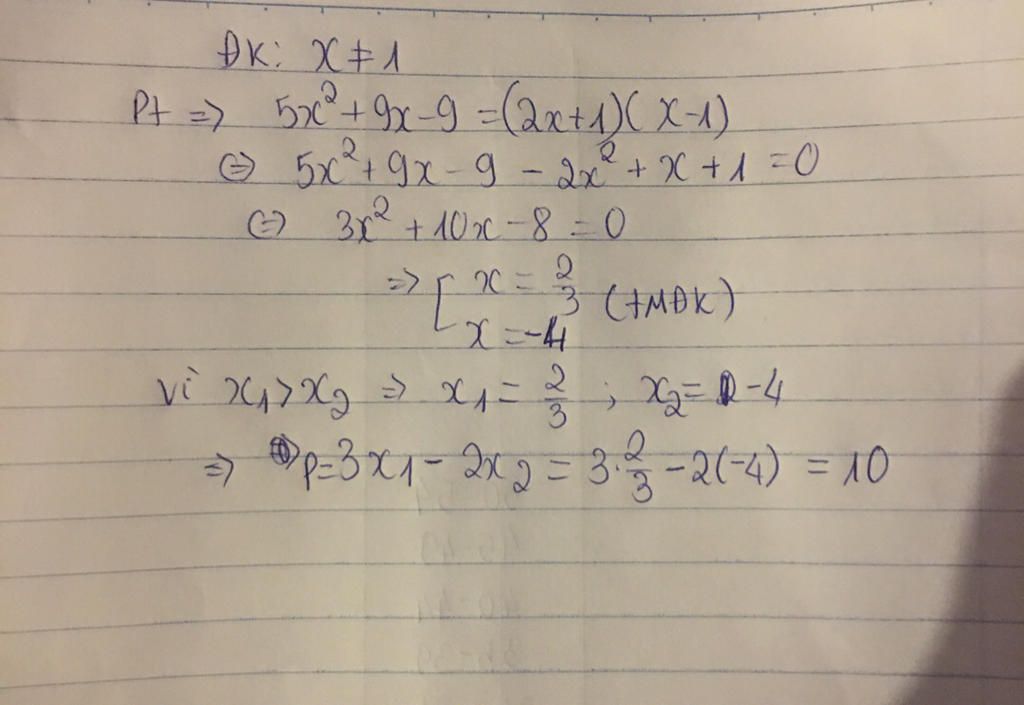 ĐK: x ≠ 1
Pt => 5x² + 9x - 9 = (2x+1)(x-1)
<=> 5x² + 9x - 9 - 2x² + x + 1 = 0
<=> 3x² + 10x - 8 = 0
=> [ x = 2/3 (tMĐK)
x = -4
Vì x₁ > x₂ => x₁ = 2/3 ; x₂ = -4
=> P = 3x₁ - 2x₂ = 3·2/3 - 2(-4) = 10